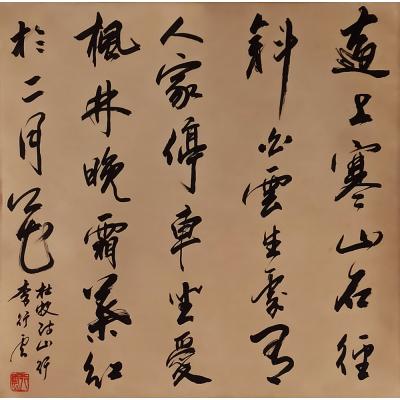 遠上寒山石徑
斜白雲生處有
人家停車坐愛
楓林晚霜葉紅
於二月花
杜牧詩山行
李行雲